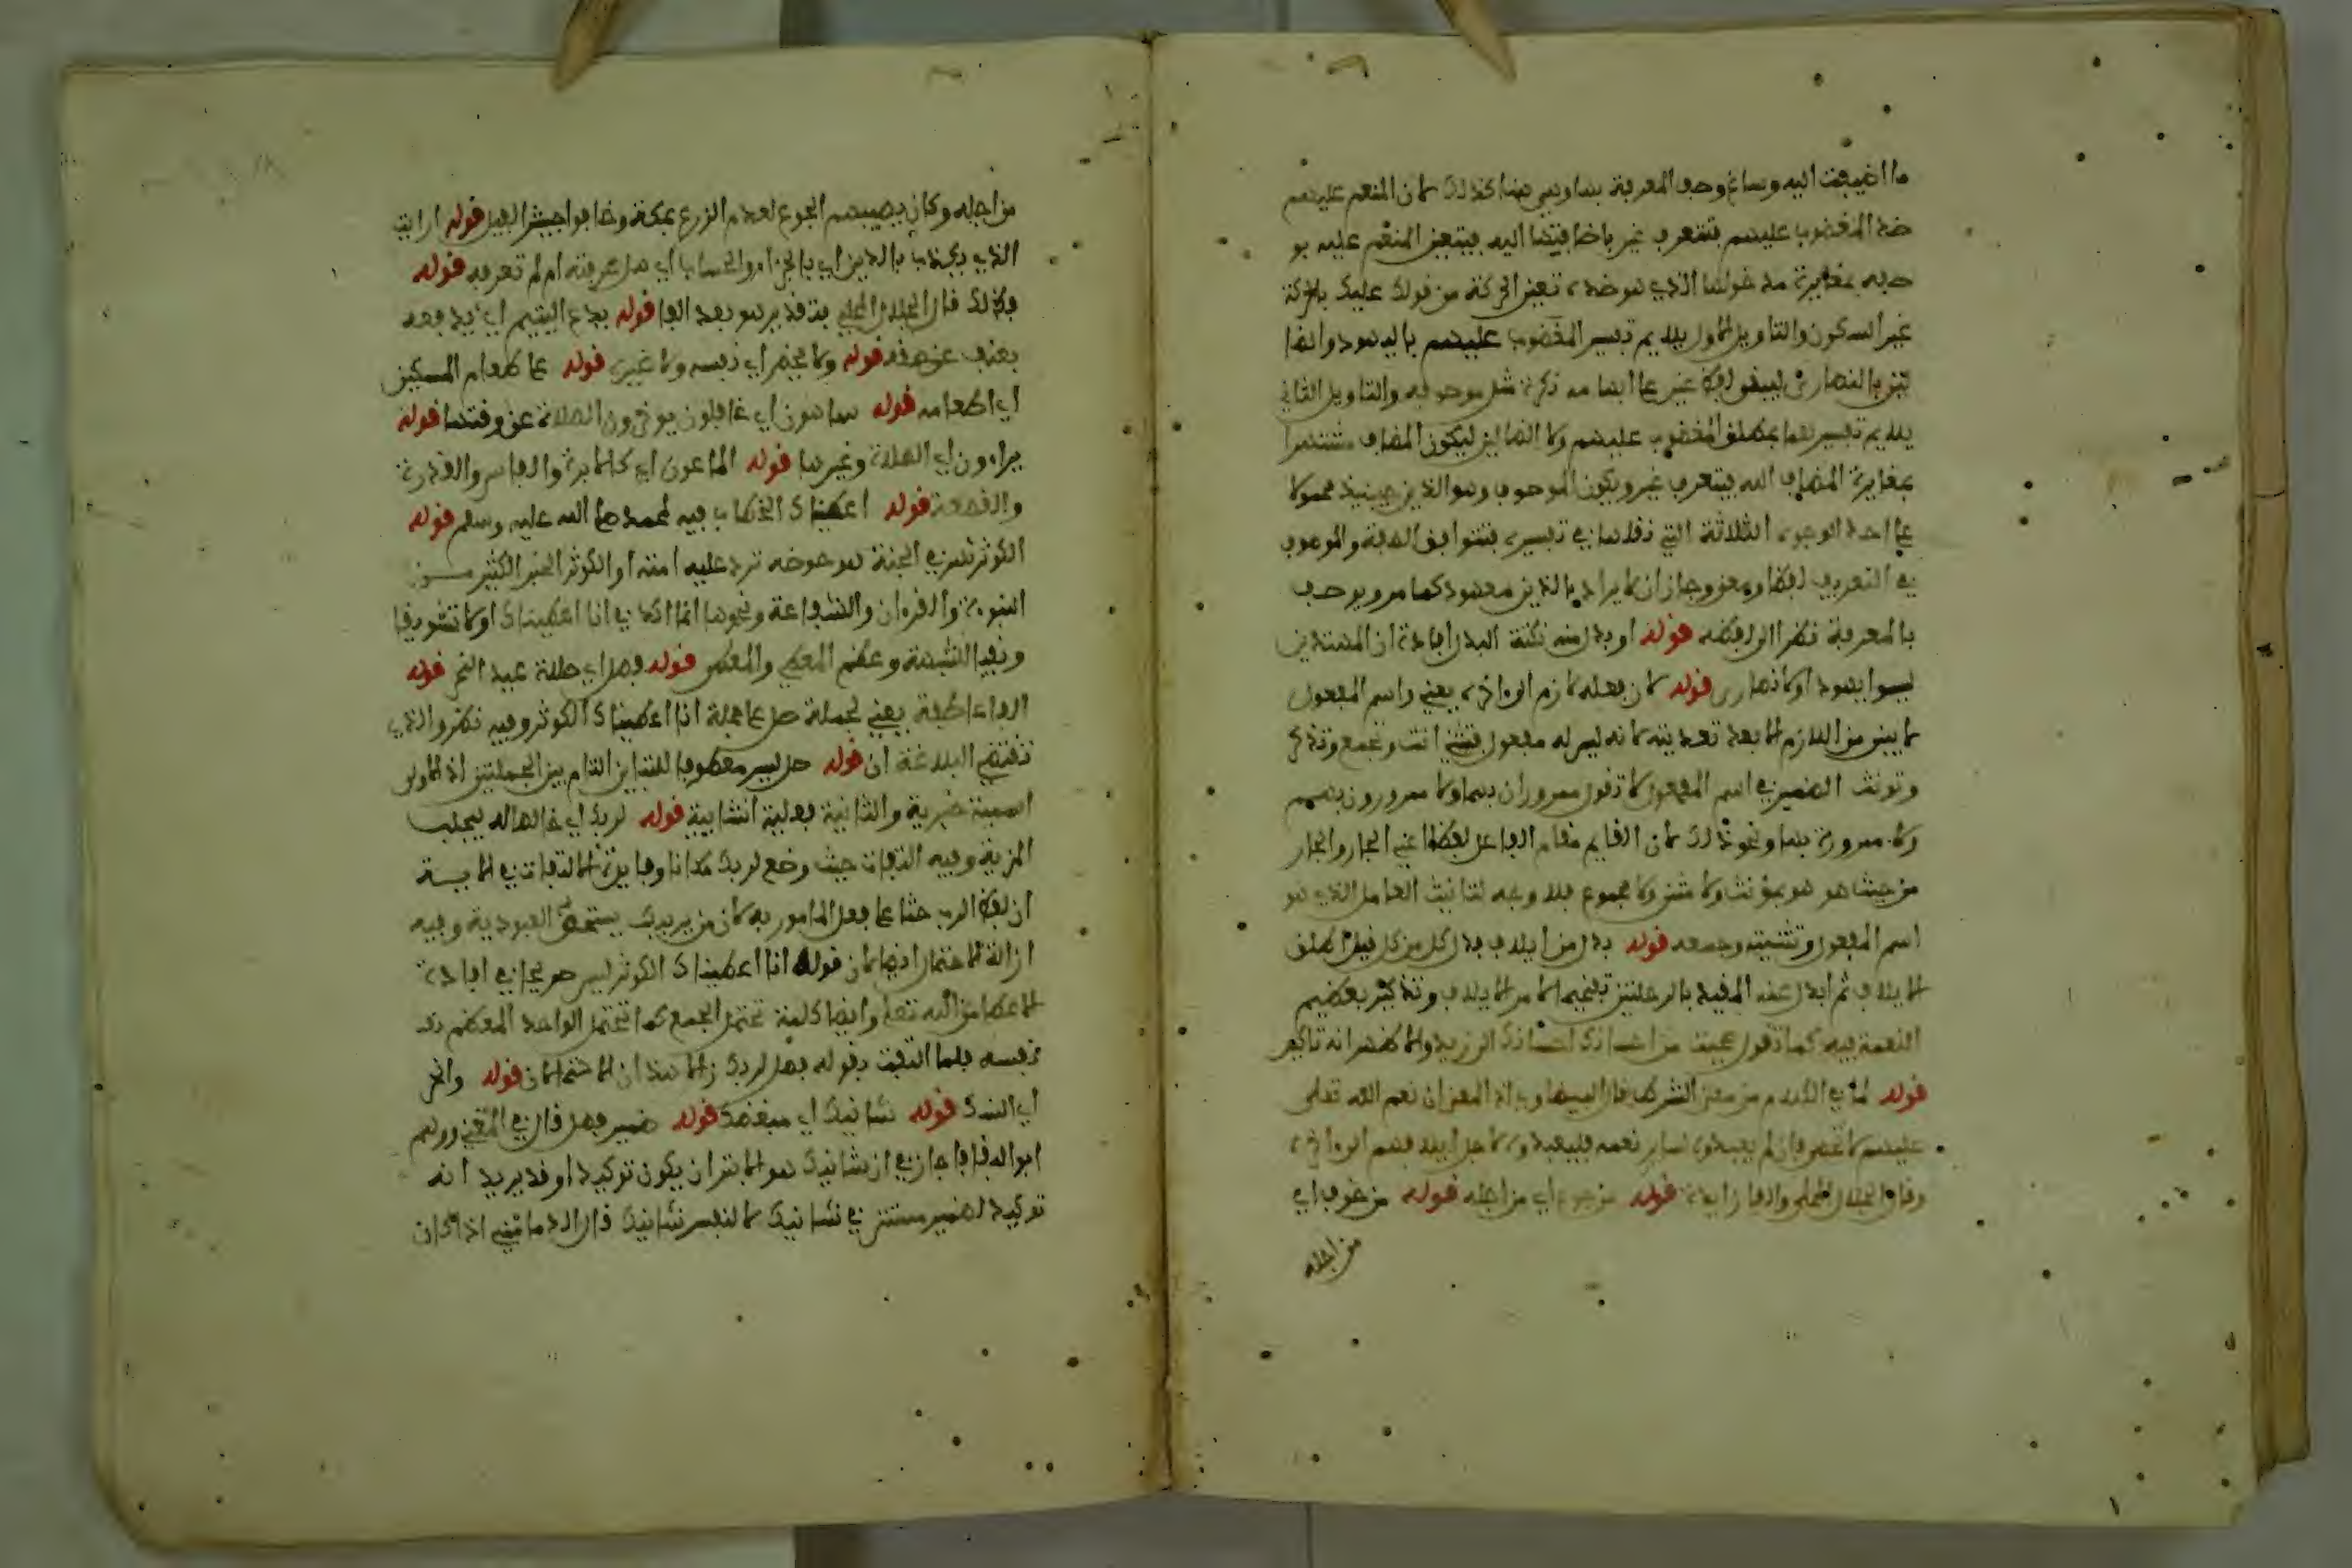 ما اضيفت اليه وساغ وصف المعرفة بها وهي هنا كذلك لان المنعم عليهم
ضد المغضوب عليهم فتتعرف غير باضافتها اليه فيتعين المنعم عليه بو
صفه بمغايرة مدخولها الذي هو ضده تعين الحركة من قولك عليك بالحركة
غير السكون والتاويل الاول يلايم تفسير المغضوب عليهم باليهود والضا
لين بالنصارى ليبقى لفظ غير على ابهامه نكرة مثل موصوفه والتاويل الثاني
يلايم تفسيرهما بمطلق المغضوب عليهم ولا الضالين ليكون المضاف مشتهرا
بمغايرة المضاف اليه فيتعرف غير ويكون الموصوف وهو الذين حينيذ محمولا
على احد الوجوه الثلاثة التي نقلها في تفسيره فتتوافق الصفة والموصوف
في التعريف لفظا ومعنى وجاز ان لا يراد بالذين معهود كما مر ويوصف
بالمعرفة نظرا الى لفظه قوله او بدل منه نكتة البدل افادة ان المهتدين
ليسوا يهود اولا نصارى قوله لان فعله لازم الى اخره يعني واسم المفعول
لا يبنى من اللازم الا بعد تعديته لانه ليس له مفعول فتثني انت وتجمع وتذكر
وتونث الضمير في اسم المفعول لا تقول ممروران بهما ولا ممرورون بهم
ولا ممرورة بها ونحو ذلك لان القايم مقام الفاعل لفظا اعني الجار والجار
من حيث هو هو بمؤنث ولا مثنى ولا مجموع فلا وجه لتانيث العامل الذي هو
اسم المفعول وتثنيته وجمعه قوله بدل من ايلاف بدل كل من كل قيل اطلق
الايلاف ثم ابدل عنه المقيد بالرحلتين تفخيما لامر الايلاف وتذكير بعظيم
النعمة فيه كما تقول عجبت من احسانك احسانك الى زيد والاظهر انه تاكيد
قوله لما في الكلام من معنى الشرط قال البيضاوي اذ المعنى ان نعم الله تعلى
عليهم لا تحصى فان لم يعبدوه لساير نعمه فليعبدوه لاجل ايلافهم الى اخره
وقال الجلال المحلي والفا زايدة قوله من جوع اي من اجله قوله من خوف اي
من اجله
من اجله وكان يصيبهم الجوع لعدم الزرع بمكة وخافوا جيش الفيل قوله ارايت
الذي يكذب بالدين اي بالجزاء والحساب اي هل عرفته ام لم تعرفه قوله
فذلك قال الجلال المحلي بتقدير هو بعد الفا قوله يدع اليتيم اي يدفعه
بعنف عن حقه قوله ولا يحض اي نفسه ولا غيره قوله على طعام المسكين
اي اطعامه قوله ساهون اي غافلون يوخرون الصلاة عن وقتها قوله
يراءون اي الصلاة وغيرها قوله الماعون اي كالابرة والفاس والقدرة
والقصعة قوله اعطيناك الخطاب فيه لمحمد صلى الله عليه وسلم قوله
الكوثر نهر في الجنة هو حوضه ترد عليه امته او الكوثر الخير الكثير من
النبوءة والقرءان والشفاعة ونحوها انما اكد في انا اعطيناك اولا تشويفا
ونفيا للشبهة وعظم المعطي والمعطى قوله فصل اي صلاة عيد النحر قوله
الفا عاطفة يعني لجملة صل على جملة انا اعطيناك الكوثر وفيه نظر والذي
تقتضيه البلاغة ان قوله صل ليس معطوفا للتباين التام بين الجملتين اذ الاولى
اسمية خبرية والثانية فعلية انشايية قوله لربك اي خالصا له ليجلب
المزية وفيه التفات حيث وضع لربك مكان انا وفايدة الالتفات في الاية
ان لفظ الرب حثا على فعل المامور به لان من يربيك يستحق العبودية وفيه
ازالة الاحتمال ايضا لان قوله انا اعطيناك الكوثر ليس صريحا في افادة
الاعطا من الله تعلى وايضا كلمة تحتمل الجمع كما تحتمل الواحد المعظم
نفسه فلما التفت بقوله فصل لربك زال هذان الاحتمالان قوله وانحر
اي النسك قوله شانيك اي مبغضك قوله ضمير فصل قال في المغني ووهم
ابوالبقا فاجاز في ان شانيك هو الابتر ان يكون توكيدا وقد يريد انه
توكيد لضمير مستتر في شانيك لا لنفس شانيك قال الدماميني اذا كان